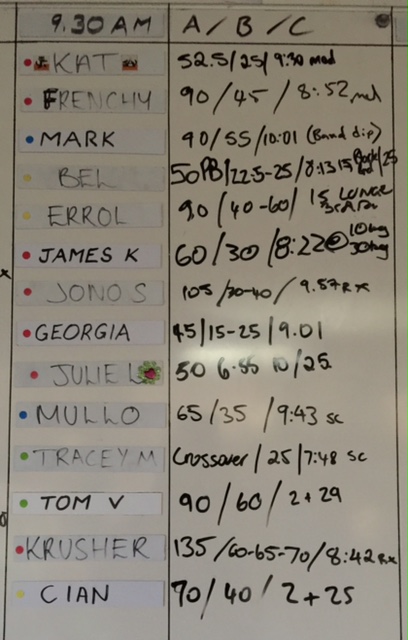 9.30 AM A / B / C
KAT 52.5 / 25 / 9:30 mod
FRENCHY 90 / 45 / 8:52 md
MARK 90 / 55 / 10:01 (Band dip)
BEL 50 PB / 22.5-25 / 8:13 15 / 25
ERROL 90 / 40-60 / 15 LUNGE
JAMES K 60 / 30 / 8:22 @ 10kg 30kg
JONO S 105 / 30-40 / 9.57 RX
GEORGIA 45 / 15-25 / 9.01
JULIE L 50 6:55 10 / 25
MULLO 65 / 35 / 9:43 sc
TRACEY M Crossover / 25 / 7:48 sc
TOM V 90 / 60 / 2 + 29
KRUSHER 135 / 60-65-70 / 8:42 Rx
CIAN 70 / 40 / 2 + 25